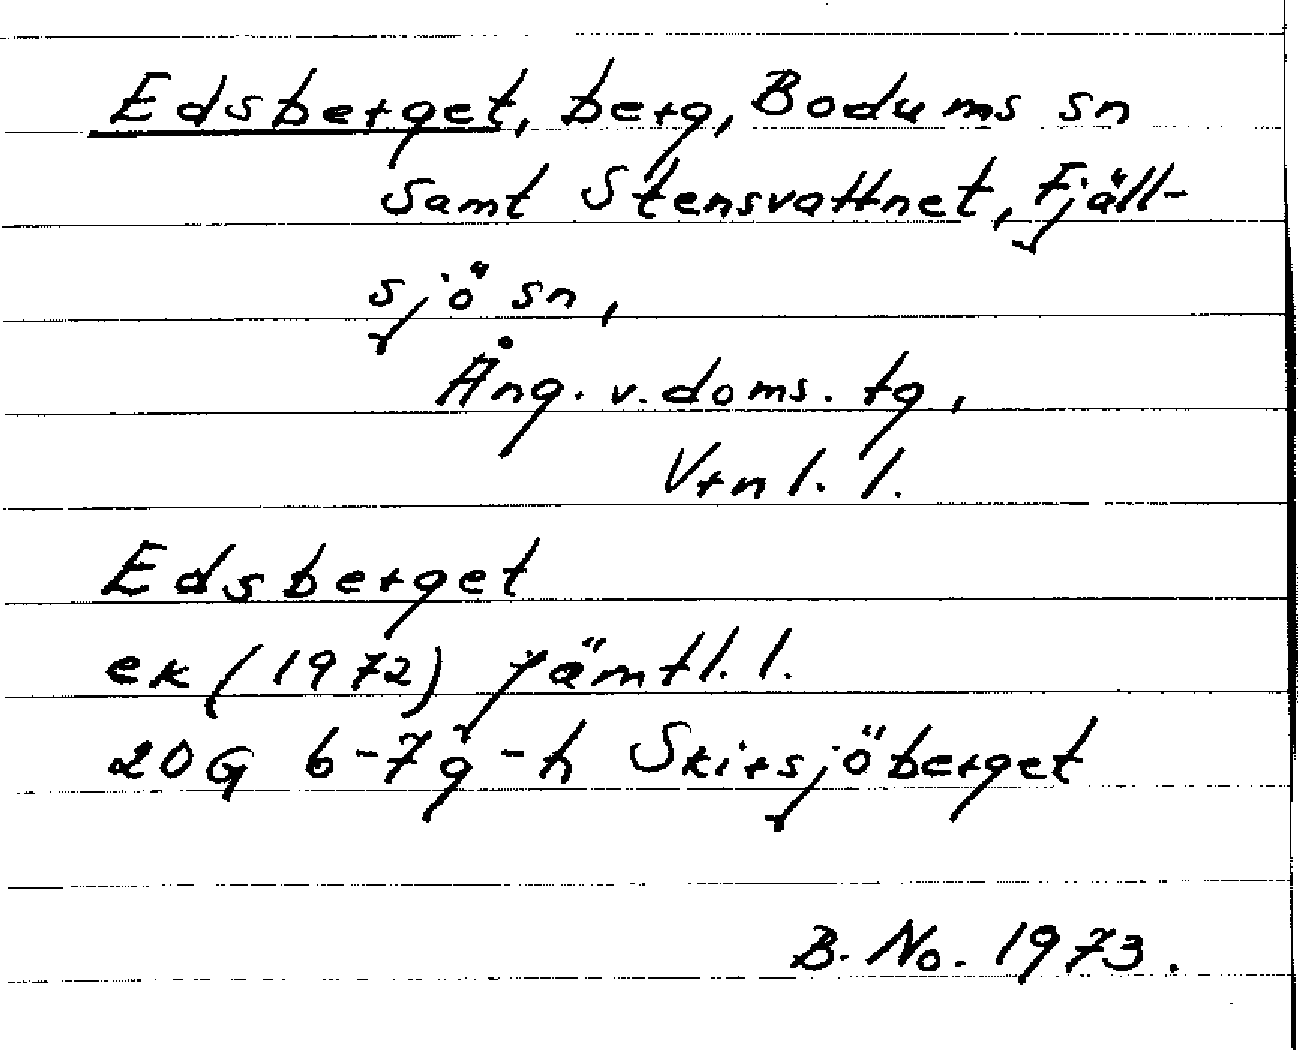 Edsberget, berg, Bodums sn
samt Stensvattnet, Fjäll-
sjö sn,
Ång. v. doms. tg,
Vrnl. l.
Edsberget
ek (1972) Jämtl. l.
20G 6-7g-h Skirsjöberget
B. No. 1973.